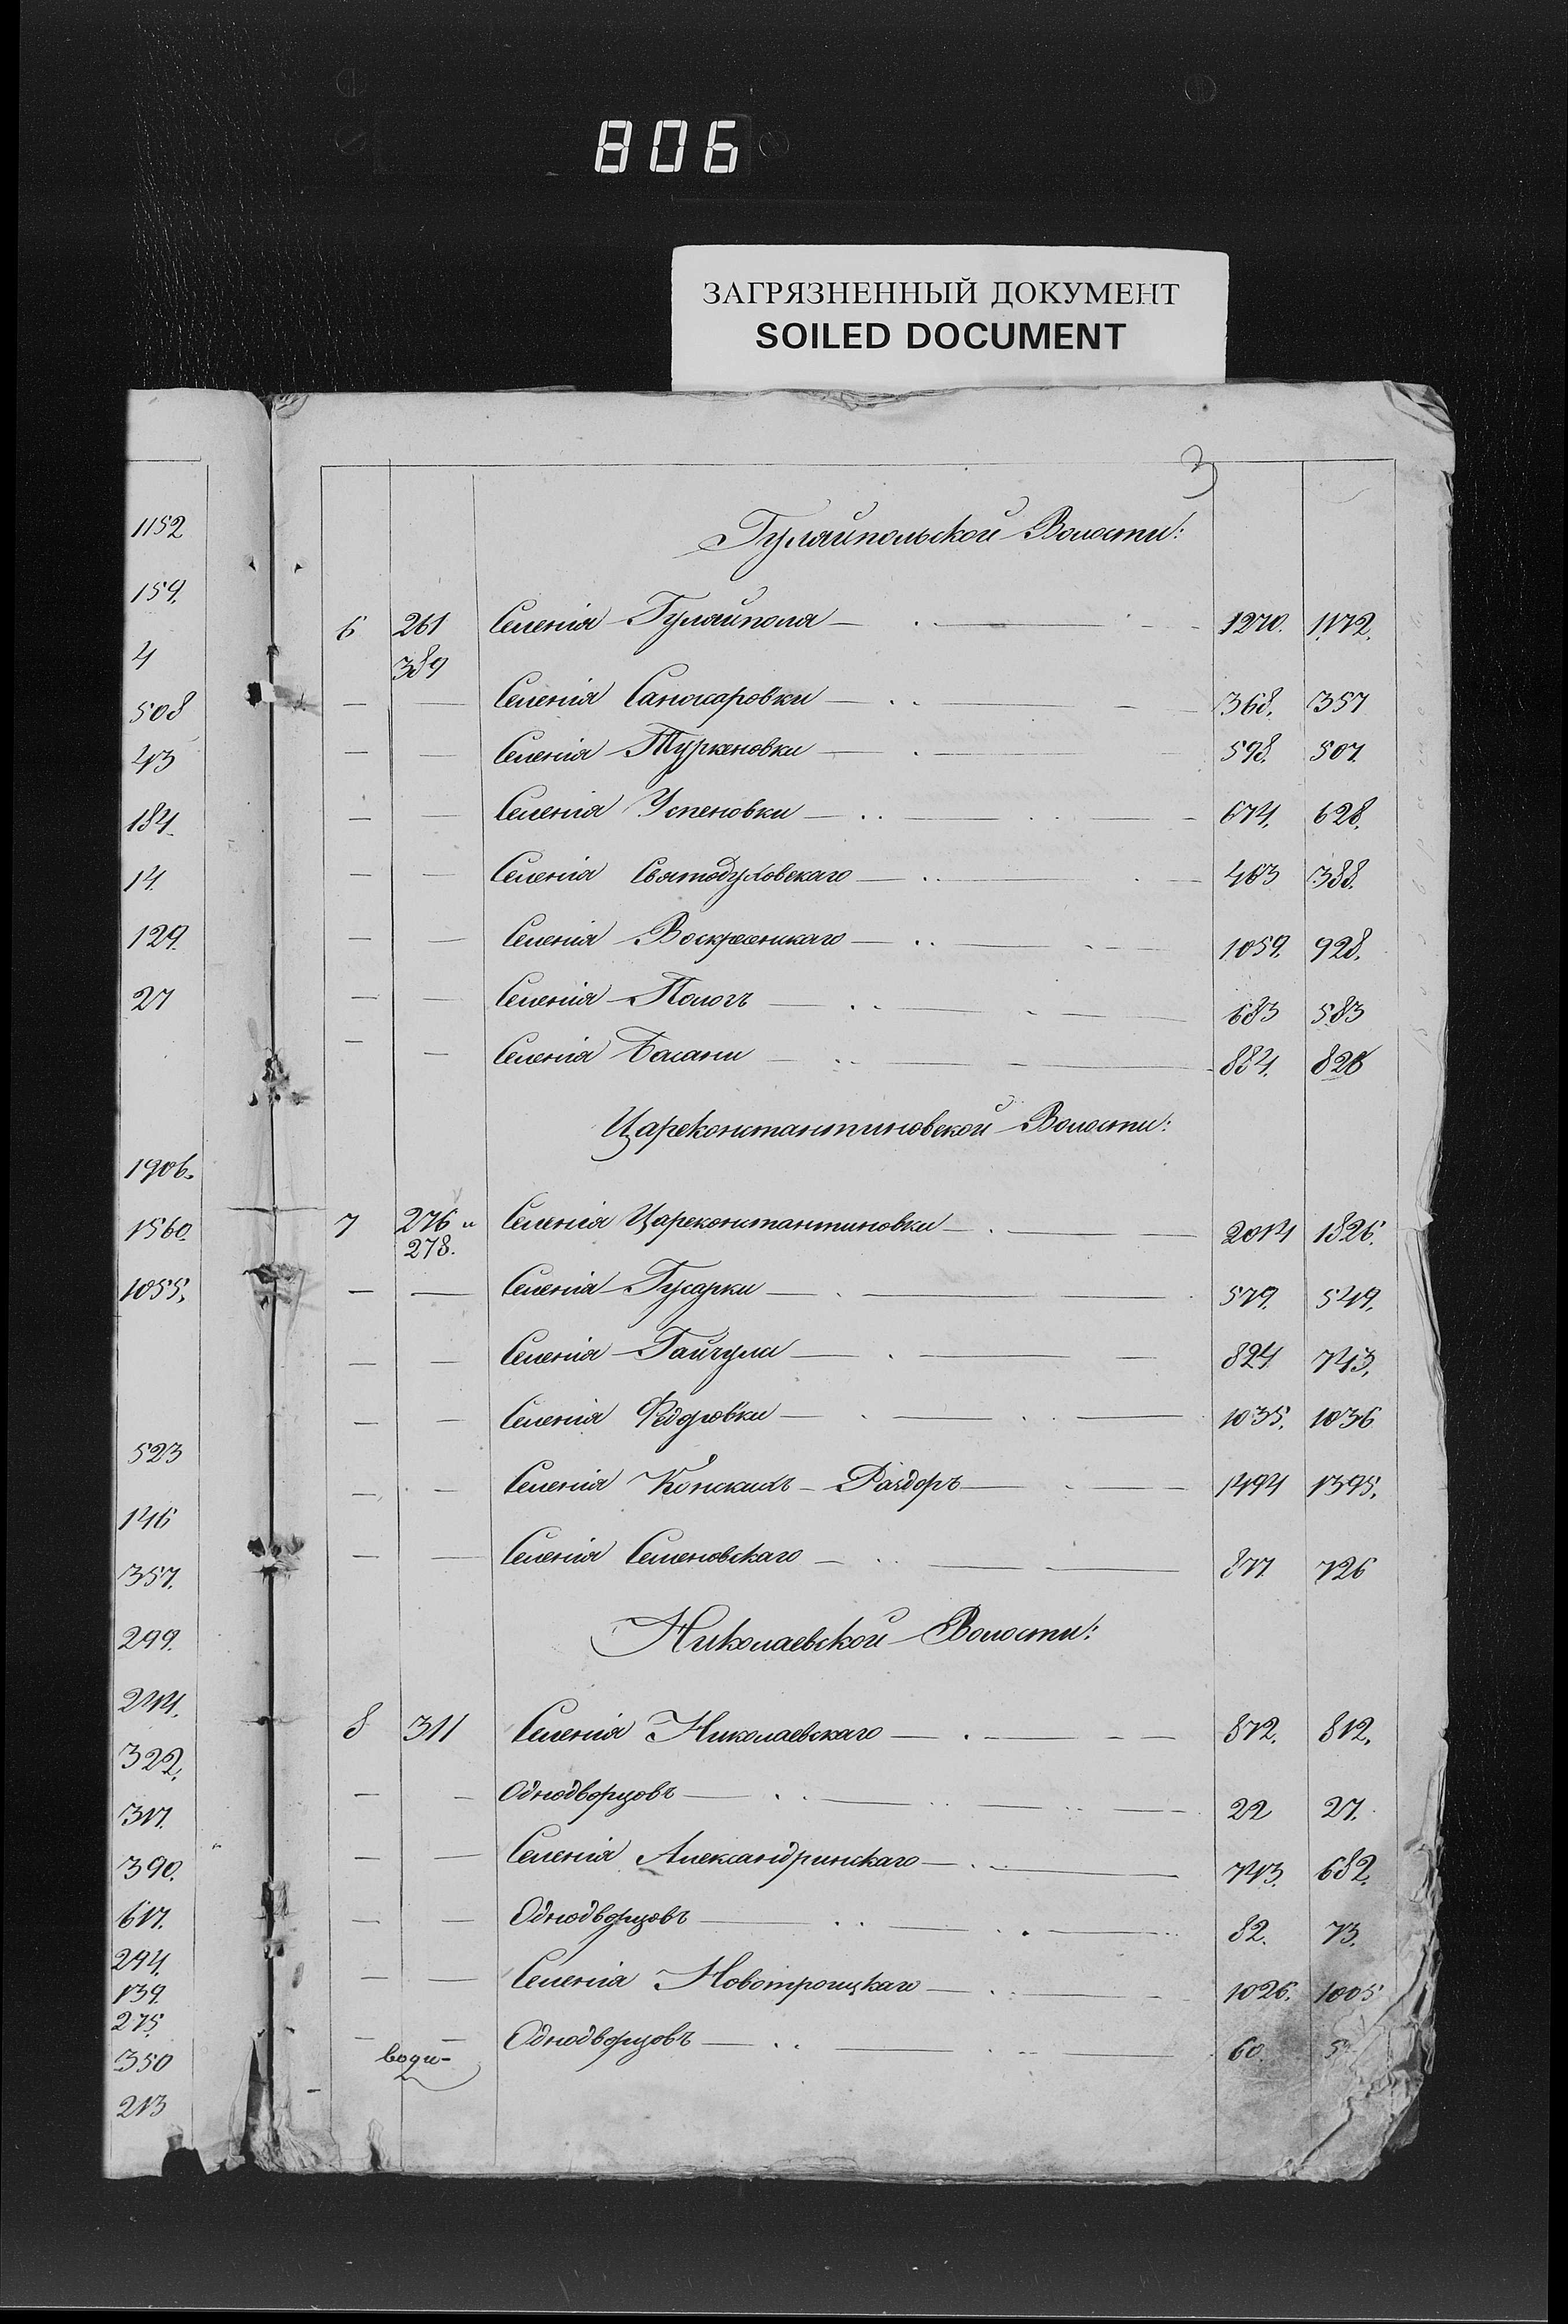 806
ЗАГРЯЗНЕННЫЙ ДОКУМЕНТ
SOILED DOCUMENT
1152
159.
4
508
43
184.
14
129.
27
1906.
1560.
1055.
523
146
357.
299.
244.
322.
317.
390.
617.
294.
139.
275.
350
213
3
Гуляйпольской Волости:
6 261 Селенія Гуляйполя 1270. 1172.
389
— — Селенія Санжаровки 368. 357
— — Селенія Туркеновки 598. 507.
— — Селенія Успеновки 674. 628.
— — Селенія Святодуховскаго 403 388.
— — Селенія Воскресенскаго 1059. 928.
— — Селенія Пологъ 683 583
— — Селенія Басани 884. 826
Цареконстантиновской Волости:
7 276 и Селенія Цареконстантиновки 2014 1826.
278.
— — Селенія Гусарки 579. 549.
— — Селенія Гайчула 824 743.
— — Селенія Федоровки 1035. 1036
— — Селенія Конскихъ-Раздоръ 1494 1395.
— — Селенія Семеновскаго 877. 726
Николаевской Волости:
8 311 Селенія Николаевскаго 872. 812.
— — Однодворцовъ 22 27.
— — Селенія Александринскаго 743. 682.
— — Однодворцовъ 82. 73.
— — Селенія Новотроицкаго 1026. 1005
— — Однодворцовъ 60.